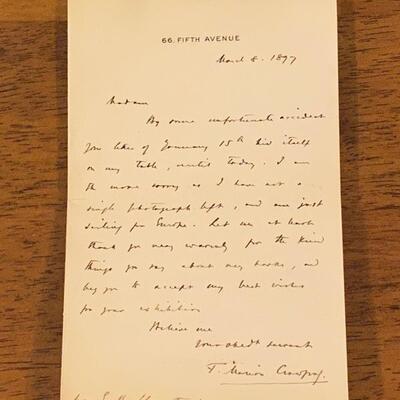 66. FIFTH AVENUE
March 8. 1897
Madam
By some unfortunate accident
your letter of January 15th hid itself
on my table, until today. I am
the more sorry as I have not a
single photograph left, and am just
sailing for Europe. Let me at least
thank you very warmly for the kind
things you say about my books, and
beg you to accept my best wishes
for your exhibition
Believe me
Your obedt servant
F. Marion Crawford